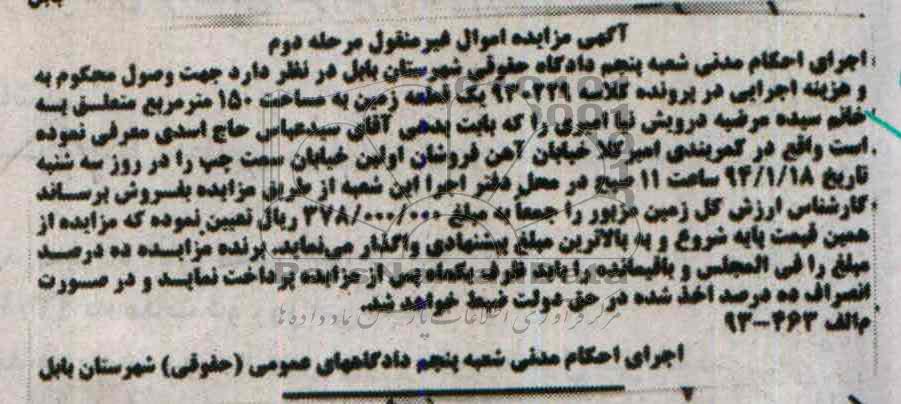 آگهی مزایده اموال غیرمنقول مرحله دوم
اجرای احکام مدنی شعبه پنجم دادگاه حقوقی شهرستان بابل در نظر دارد جهت وصول محکوم به
و هزینه اجرایی در پرونده کلاسه ۲۲۹-۹۳ یک قطعه زمین به مساحت ۱۵۰ مترمربع متعلق به
خانم سیده مرضیه درویش نیا امیری را که بابت بدهی آقای سیدعباس حاج اسدی معرفی نموده
است واقع در کمربندی امیرکلا خیابان آهن فروشان اولین خیابان سمت چپ را در روز سه شنبه
تاریخ ۹۴/۱/۱۸ ساعت ۱۱ صبح در محل دفتر اجرا این شعبه از طریق مزایده بفروش برساند
کارشناس ارزش کل زمین مزبور را جمعاً به مبلغ ۳۷۸/۰۰۰/۰۰۰ ریال تعیین نموده که مزایده از
همین قیمت پایه شروع و به بالاترین مبلغ پیشنهادی واگذار می‌نماید. برنده مزایده ده درصد
مبلغ را فی المجلس و باقیمانده را باید ظرف یکماه پس از مزایده پرداخت نماید و در صورت
انصراف ده درصد اخذ شده در حق دولت ضبط خواهد شد.
م‌الف ۴۶۳-۹۳
اجرای احکام مدنی شعبه پنجم دادگاههای عمومی (حقوقی) شهرستان بابل